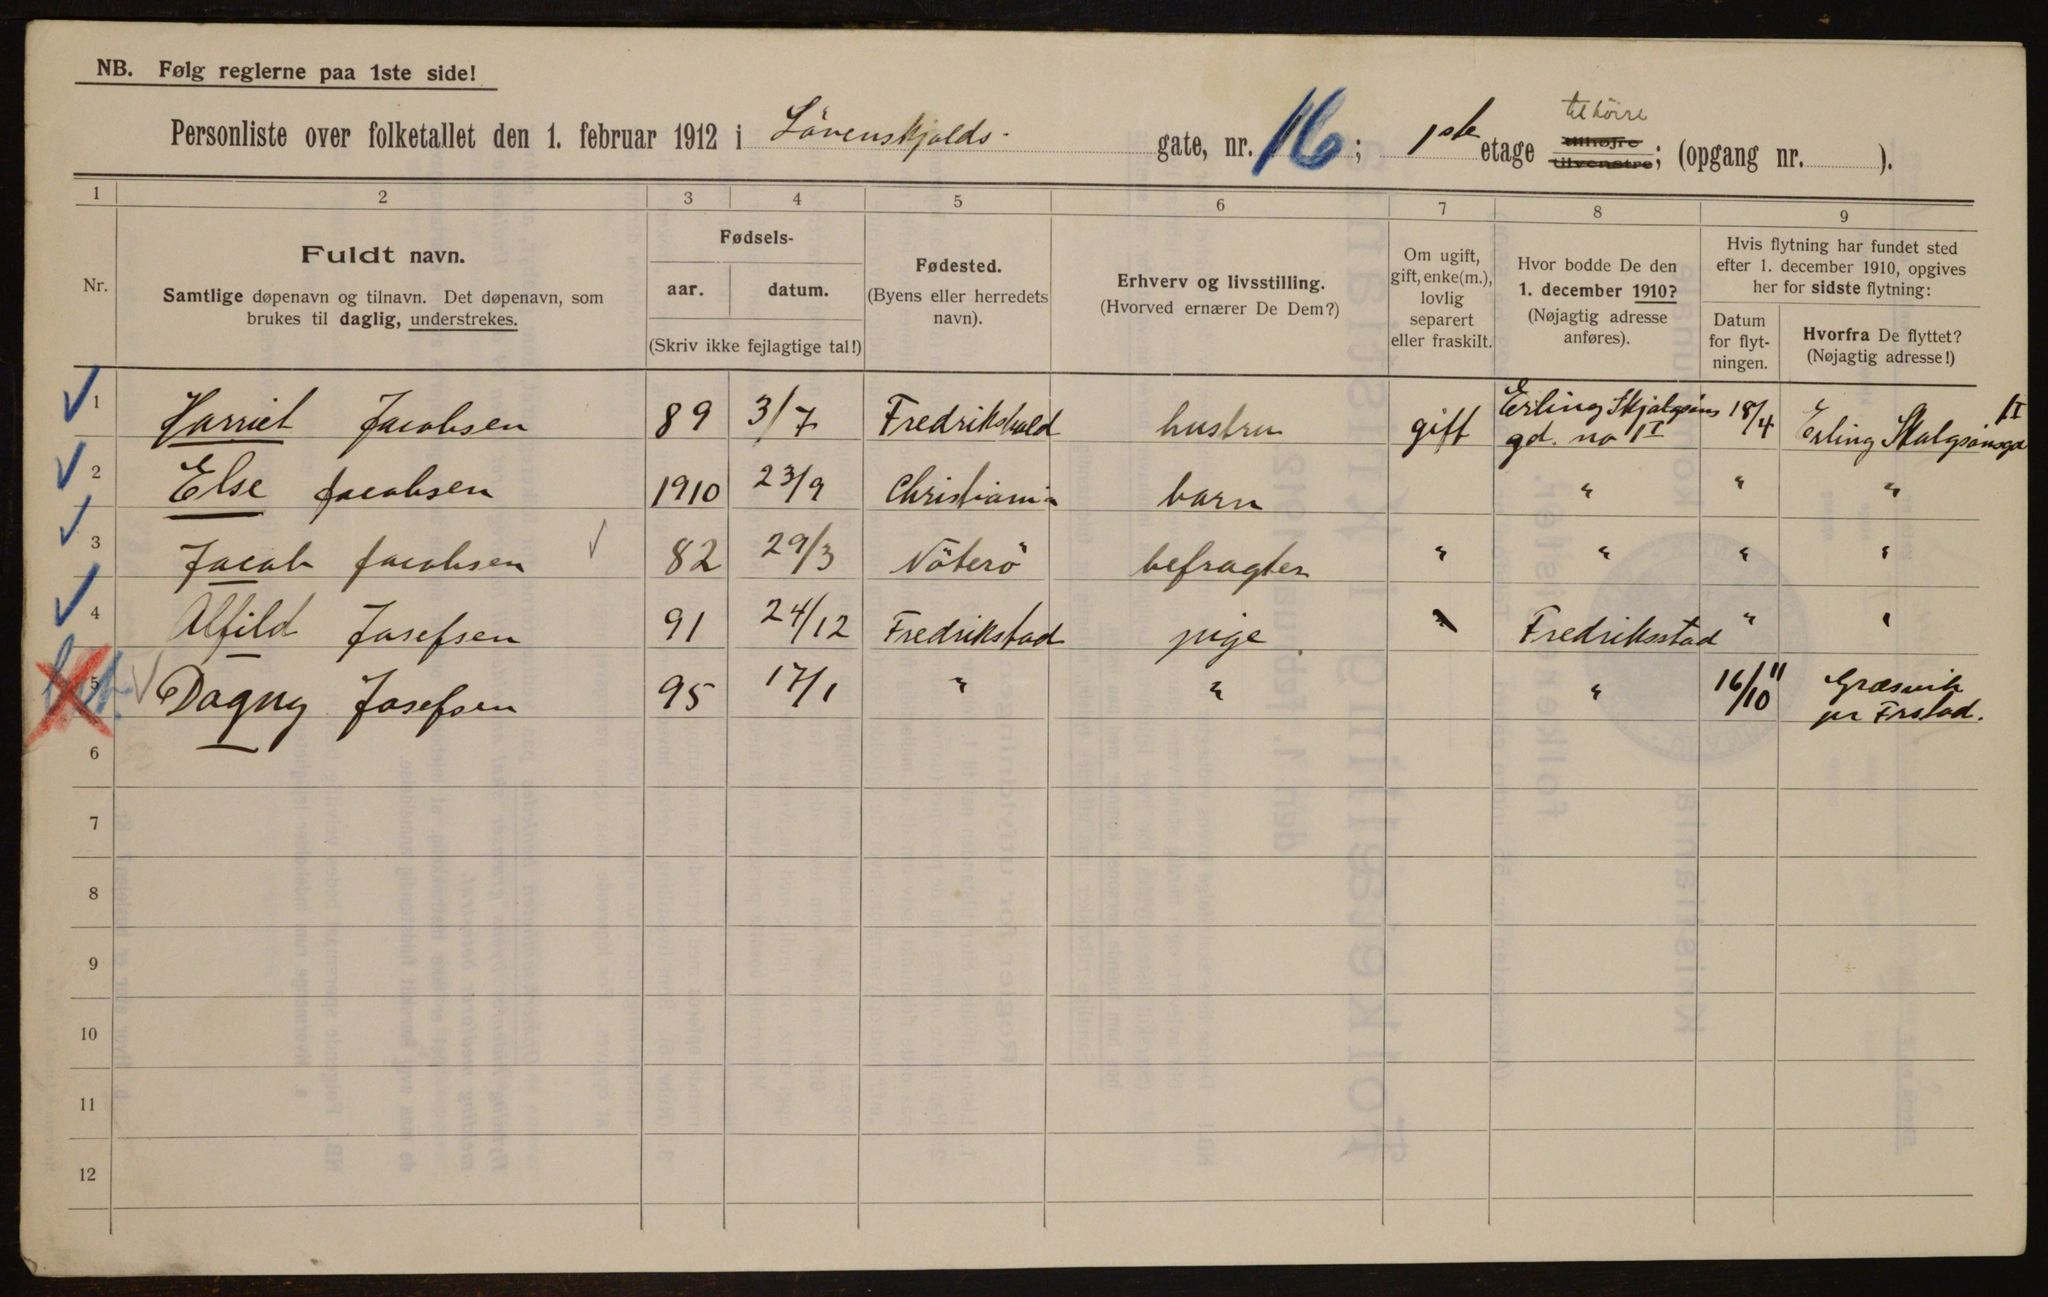 NB. Følg reglerne paa 1ste side!
Personliste over folketallet den 1. februar 1912 i Lövenskjolds- gate, nr. 16; 1ste etage tilhøjre tilvenstre; (opgang nr. ).
til höire
1 2 3 4 5 6 7 8 9
Nr.
Fuldt navn.
Samtlige døpenavn og tilnavn. Det døpenavn, som
brukes til daglig, understrekes.
Fødsels-
aar. datum.
(Skriv ikke fejlagtige tal!)
Fødested.
(Byens eller herredets
navn).
Erhverv og livsstilling.
(Hvorved ernærer De Dem?)
Om ugift,
gift, enke(m.),
lovlig
separert
eller fraskilt.
Hvor bodde De den
1. december 1910?
(Nøjagtig adresse
anføres).
Hvis flytning har fundet sted
efter 1. december 1910, opgives
her for sidste flytning:
Datum
for flyt-
ningen.
Hvorfra De flyttet?
(Nøjagtig adresse!)
1 Harriet Jacobsen 89 3/7 Fredrikshald hustru gift Erling Skjalgsøns gd. no 1 I 18/4 Erling Skalgsønsgd 1I
2 Else Jacobsen 1910 23/9 Christiania barn " " "
3 Jacob Jacobsen 82 29/3 Nöterö befragter " " " "
4 Alfild Josefsen 91 24/12 Fredrikstad pige Fredriksstad " "
5 Dagny Josefsen 95 17/1 " " " 16/10 11 Græsvik pr Frstad.
6
7
8
9
10
11
12